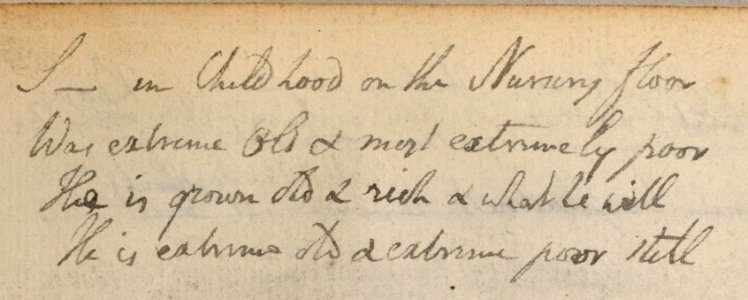 S— in Childhood on the Nursery floor
Was extreme Old & most extremely poor
He is grown old & rich & what he will
He is extreme old & extreme poor still